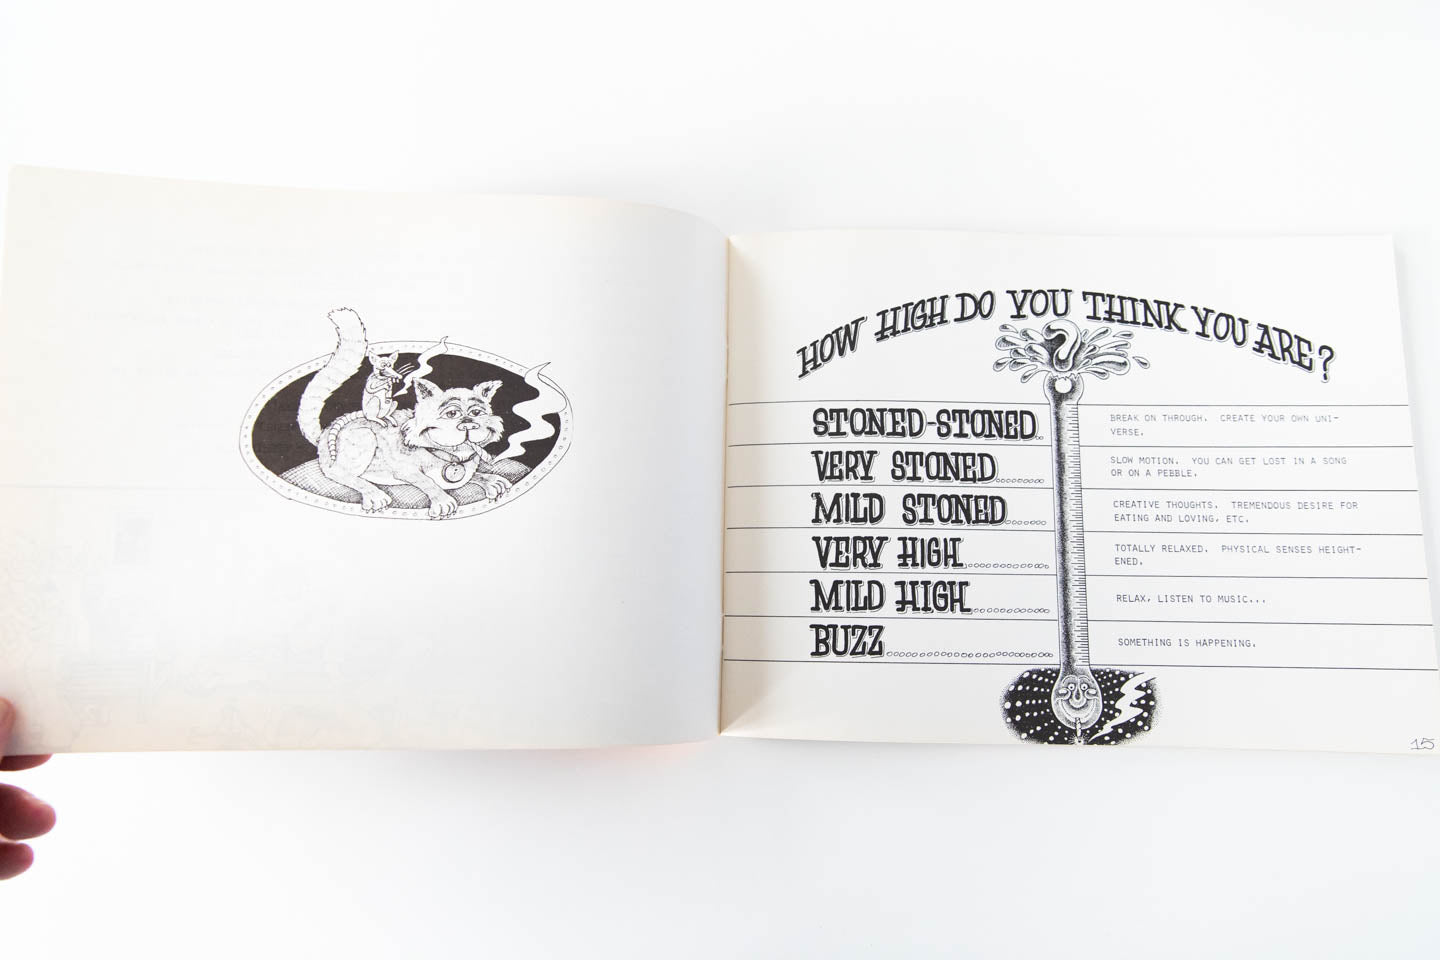 HOW HIGH DO YOU THINK YOU ARE?
STONED-STONED
BREAK ON THROUGH. CREATE YOUR OWN UNI-
VERSE.
VERY STONED
SLOW MOTION. YOU CAN GET LOST IN A SONG
OR ON A PEBBLE.
MILD STONED
CREATIVE THOUGHTS. TREMENDOUS DESIRE FOR
EATING AND LOVING, ETC.
VERY HIGH
TOTALLY RELAXED. PHYSICAL SENSES HEIGHT-
ENED.
MILD HIGH
RELAX, LISTEN TO MUSIC...
BUZZ
SOMETHING IS HAPPENING.
15